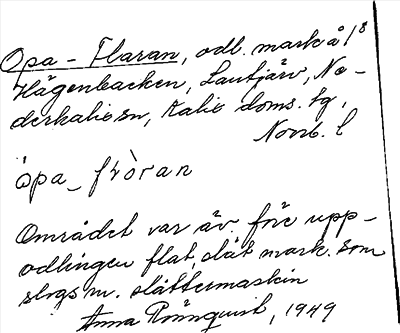 Opa-Flaran, odl. mark å 1⁸
Hägenbacken, Lantjärv, Ne-
derkalix sn, Kalix doms. tg,
Norrb. l
ö̀pa_fròran
Området var äv. före upp-
odlingen flat, slät mark. som
slogs m. slåttermaskin
Anna Rönnquist, 1949